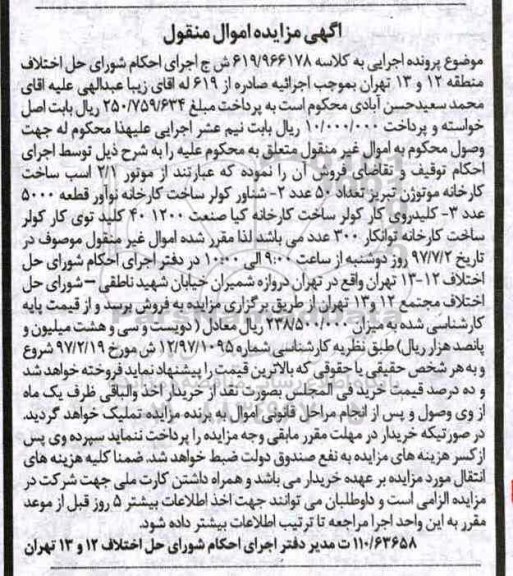 آگهی مزایده اموال منقول
موضوع پرونده اجرایی به کلاسه ۶۱۹/۹۶۶۱۷۸ ش ج اجرای احکام شورای حل اختلاف
منطقه ۱۲ و ۱۳ تهران بموجب اجرائیه صادره از ۶۱۹ له اقای زیبا عبدالهی علیه اقای
محمد سعیدحسن آبادی محکوم است به پرداخت مبلغ ۲۵۰/۷۵۹/۶۳۴ ریال بابت اصل
خواسته و پرداخت ۱۰/۰۰۰/۰۰۰ ریال بابت نیم عشر اجرایی علیهذا محکوم له جهت
وصول محکوم به اموال غیر منقول متعلق به محکوم علیه را به شرح ذیل توسط اجرای
احکام توقیف و تقاضای فروش آن را نموده که عبارتند از موتور ۲/۱ اسب ساخت
کارخانه موتوژن تبریز تعداد ۵۰ عدد ۲- شناور کولر ساخت کارخانه نوآور قطعه ۵۰۰۰
عدد ۳- کلیدروی کار کولر ساخت کارخانه کیا صنعت ۱۲۰۰ ۴۰ کلید توی کار کولر
ساخت کارخانه توانکار ۳۰۰ عدد می باشد لذا مقرر شده اموال غیر منقول موصوف در
تاریخ ۹۷/۷/۲ روز دوشنبه از ساعت ۹:۰۰ الی ۱۰:۰۰ در دفتر اجرای احکام شورای حل
اختلاف ۱۲-۱۳ تهران واقع در تهران دروازه شمیران خیابان شهید ناطقی – شورای حل
اختلاف مجتمع ۱۲ و ۱۳ تهران از طریق برگزاری مزایده به فروش برسد و از قیمت پایه
کارشناسی شده به میزان ۲۳۸/۵۰۰/۰۰۰ ریال معادل ( دویست و سی و هشت میلیون و
پانصد هزار ریال) طبق نظریه کارشناسی شماره ۱۲/۹۷/۱۰۹۵ ش مورخ ۹۷/۲/۱۹ شروع
و به هر شخص حقیقی یا حقوقی که بالاترین قیمت را پیشنهاد نماید فروخته خواهد شد
و ده درصد قیمت خرید فی المجلس بصورت نقد از خریدار اخذ والباقی ظرف یک ماه
از وی وصول و پس از انجام مراحل قانونی اموال به برنده مزایده تملیک خواهد گردید.
در صورتیکه خریدار در مهلت مقرر مابقی وجه مزایده را پرداخت ننماید سپرده وی پس
از کسر هزینه های مزایده به نفع صندوق دولت ضبط خواهد شد. ضمنا کلیه هزینه های
انتقال مورد مزایده بر عهده خریدار می باشد و همراه داشتن کارت ملی جهت شرکت در
مزایده الزامی است و داوطلبان می توانند جهت اخذ اطلاعات بیشتر ۵ روز قبل از موعد
مقرر به این واحد اجرا مراجعه تا ترتیب اطلاعات بیشتر داده شود.
۱۱۰/۶۳۶۵۸ ت مدیر دفتر اجرای احکام شورای حل اختلاف ۱۲ و ۱۳ تهران